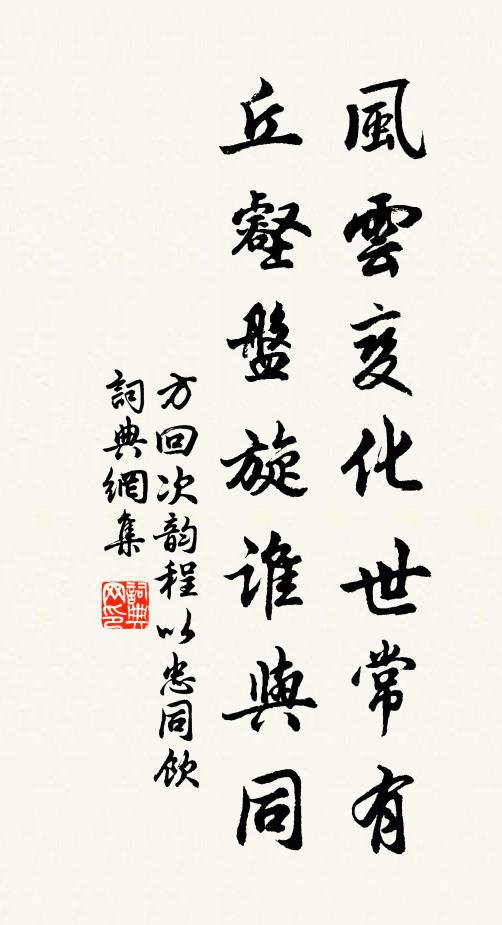 風雲變化世常有
丘壑盤旋誰與同
方回次韵程以忠同飲
詞典網集
詞典
网印